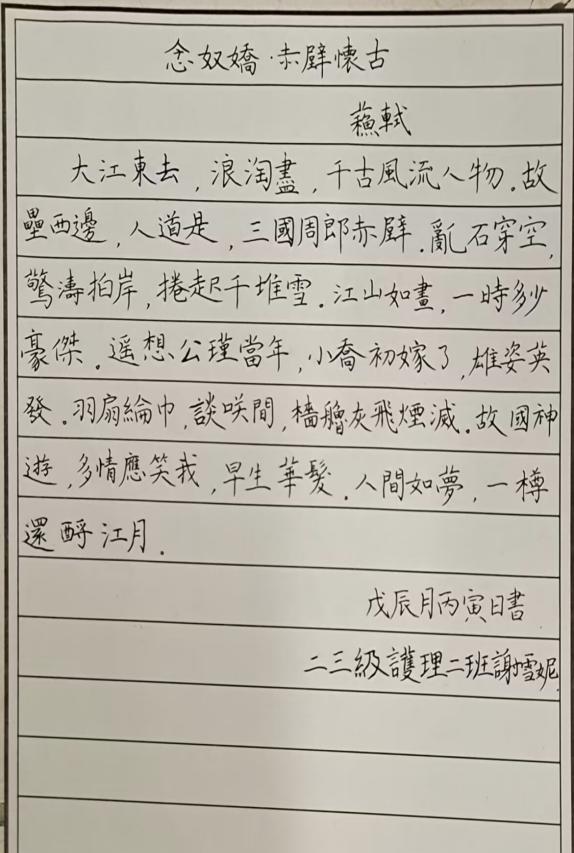 念奴嬌·赤壁懷古
蘓軾
大江東去,浪淘盡,千古風流人物.故
壘西邊,人道是,三國周郎赤壁.亂石穿空,
驚濤拍岸,捲起千堆雪.江山如畫,一時多少
豪傑.遥想公瑾當年,小喬初嫁了,雄姿英
發.羽扇綸巾,談咲間,檣艪灰飛煙滅.故國神
遊,多情應笑我,早生華髮.人間如夢,一樽
還酹江月.
戊辰月丙寅日書
二三級護理二班謝雪妮